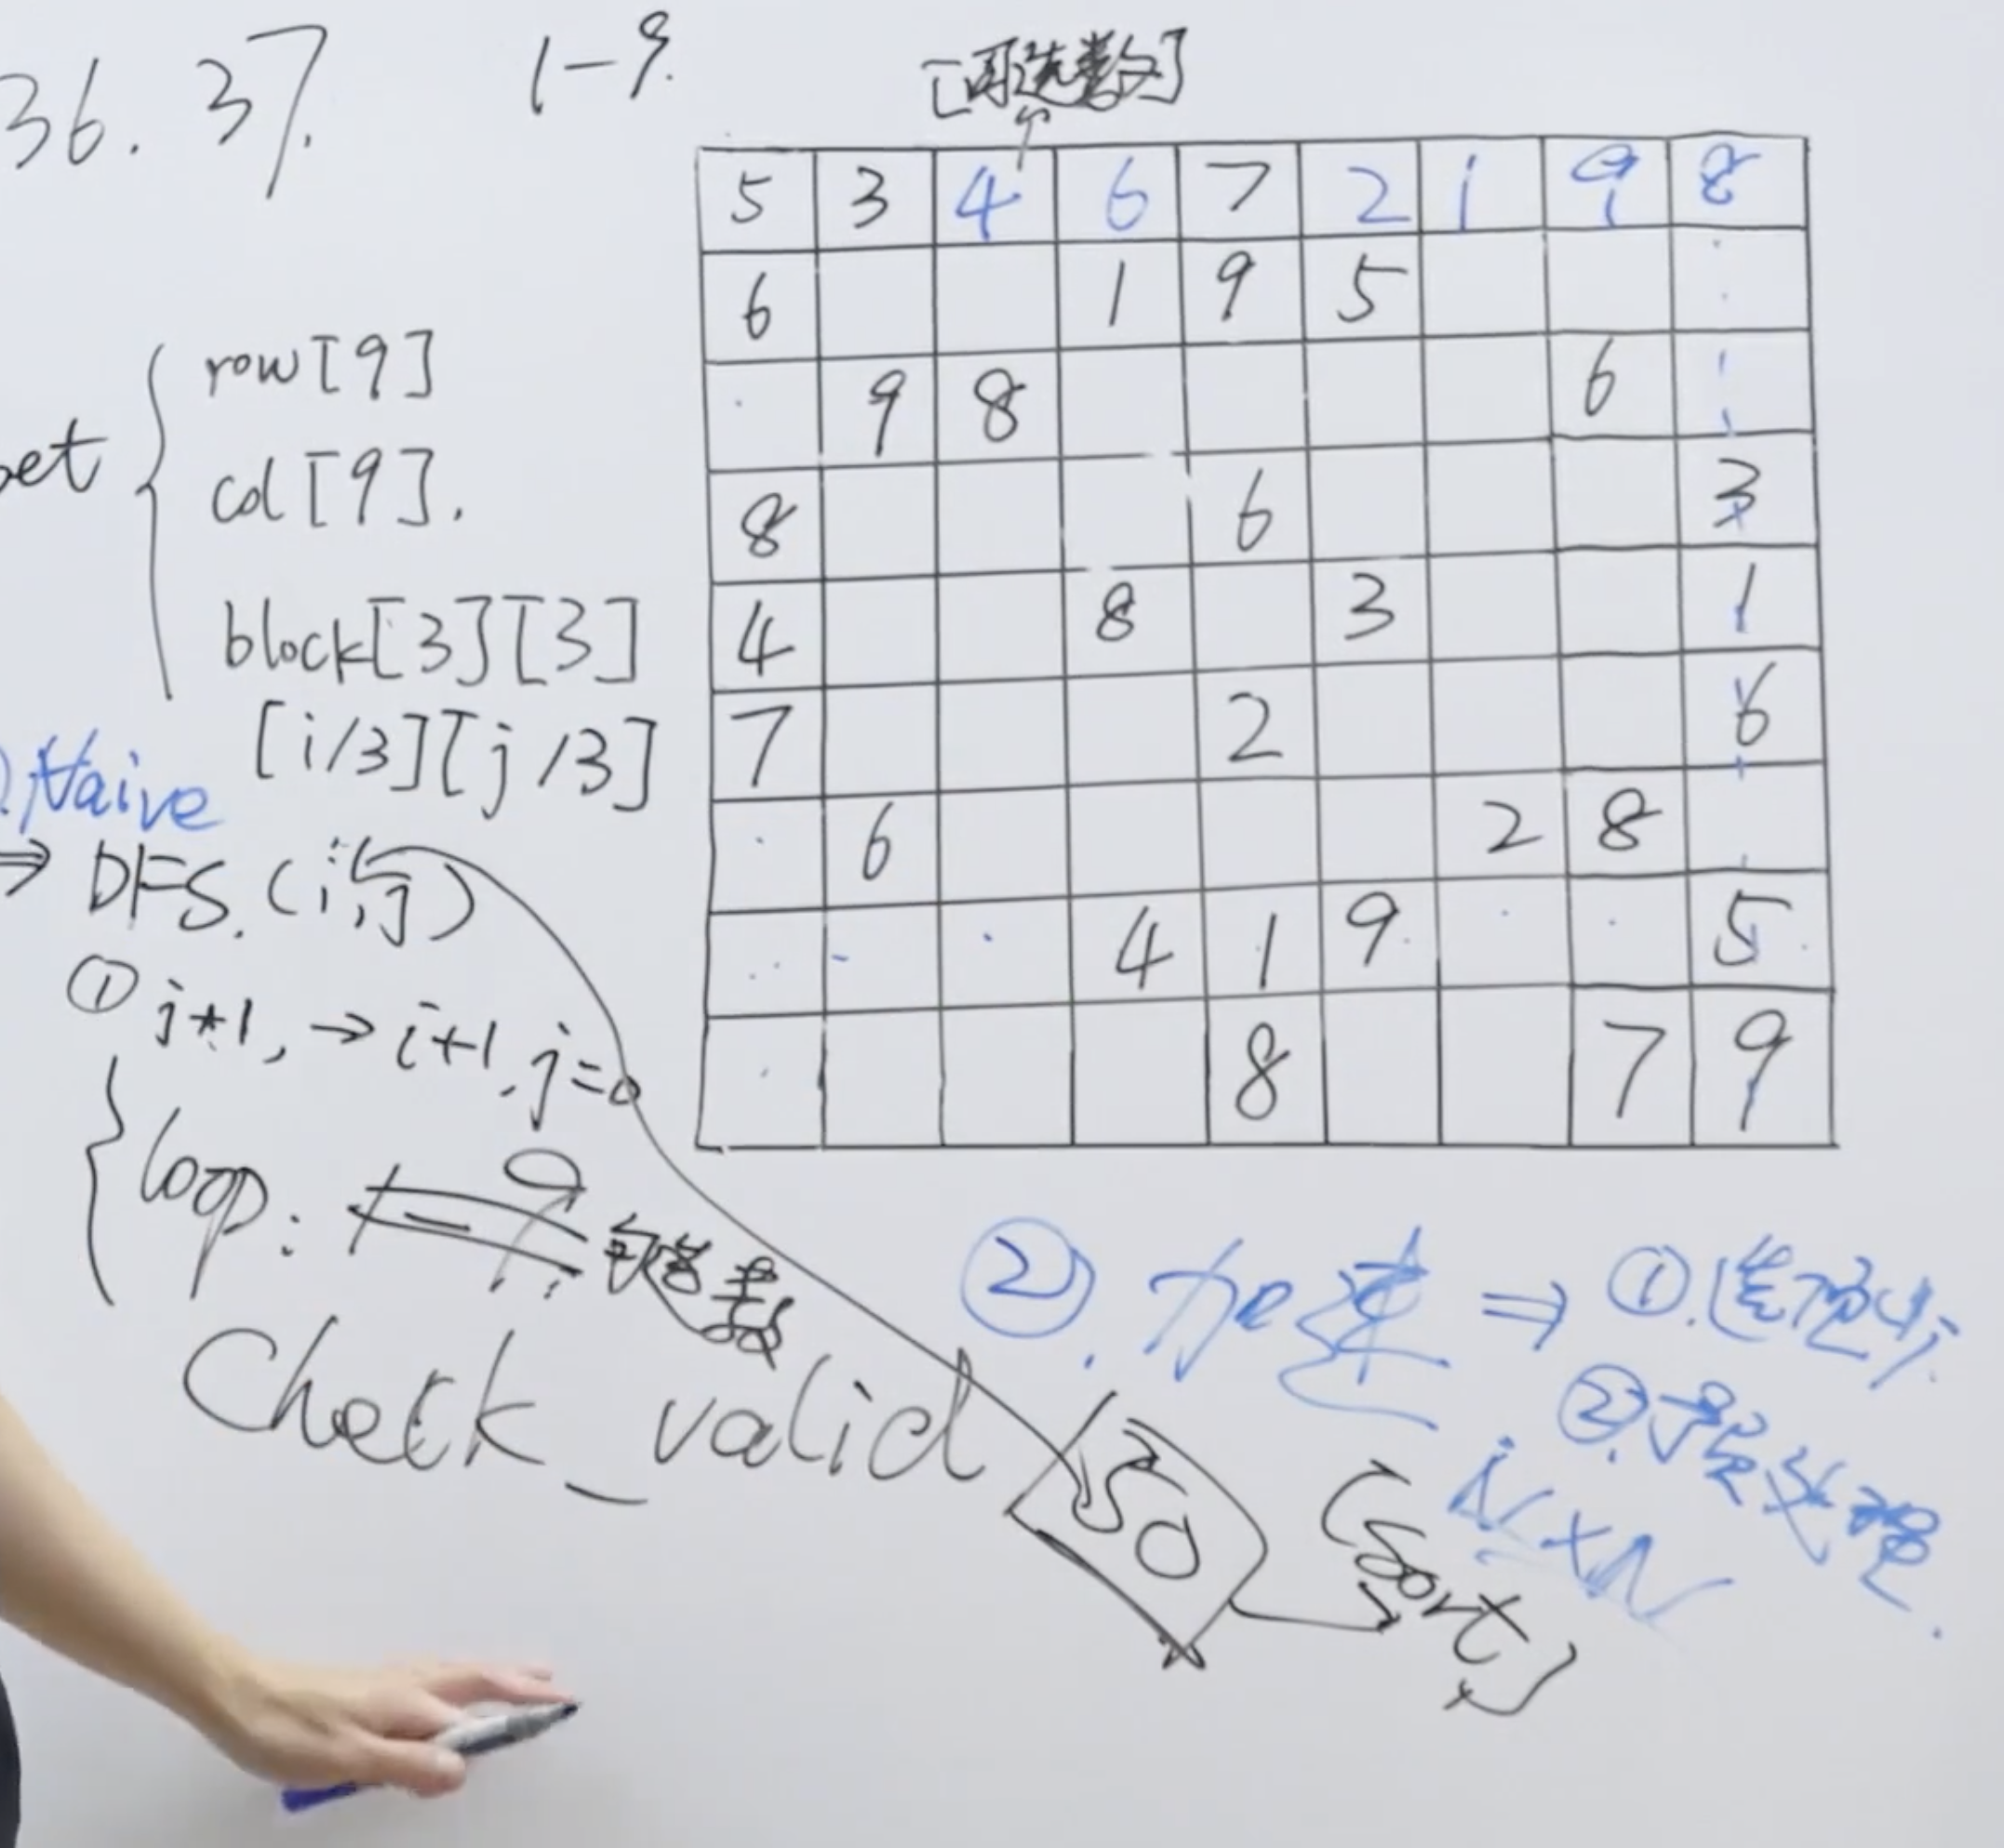 36. 37.
1-9.
[可选数]
5 3 4 6 7 2 1 9 8
6 1 9 5
9 8 6
8 6 3
4 8 3 1
7 2 6
6 2 8
4 1 9 5
8 7 9
row[9]
col[9].
block[3][3]
[i/3][j/3]
Naive
⇒ DFS. (i, j)
① j+1, → i+1, j=0
loop: 1-9 可选数
Check_valid
②. 加速 ⇒ ①.
②.预处理.
N×N
50
(Sort)